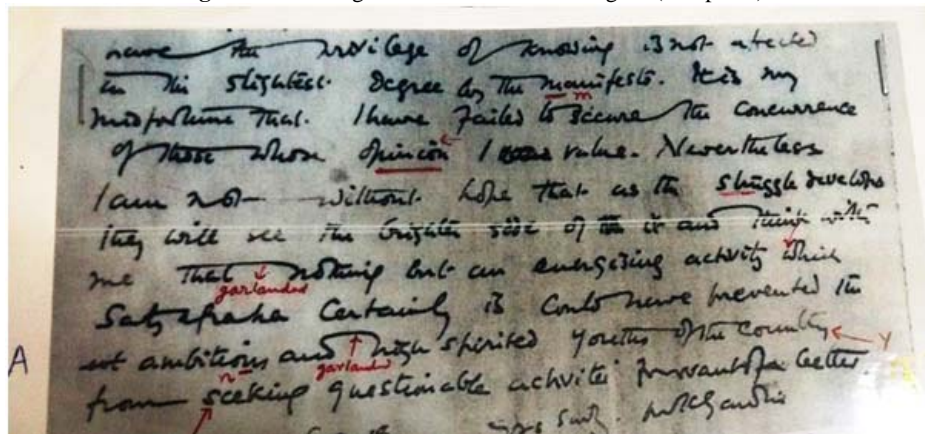 have the privilege of knowing is not affected
in the slightest degree by the manifesto. It is my
m
misfortune that I have failed to secure the concurrence
of those whose opinion I value. Nevertheless
I am not without hope that as the struggle develops
they will see the brighter side of it and think with
me that nothing but an energising activity which
garlanded
Satyagraha Certainly is could have prevented the
ambitious and high spirited youths of the country
Y
A
n
garlanded
from seeking questionable activities for want of a better.